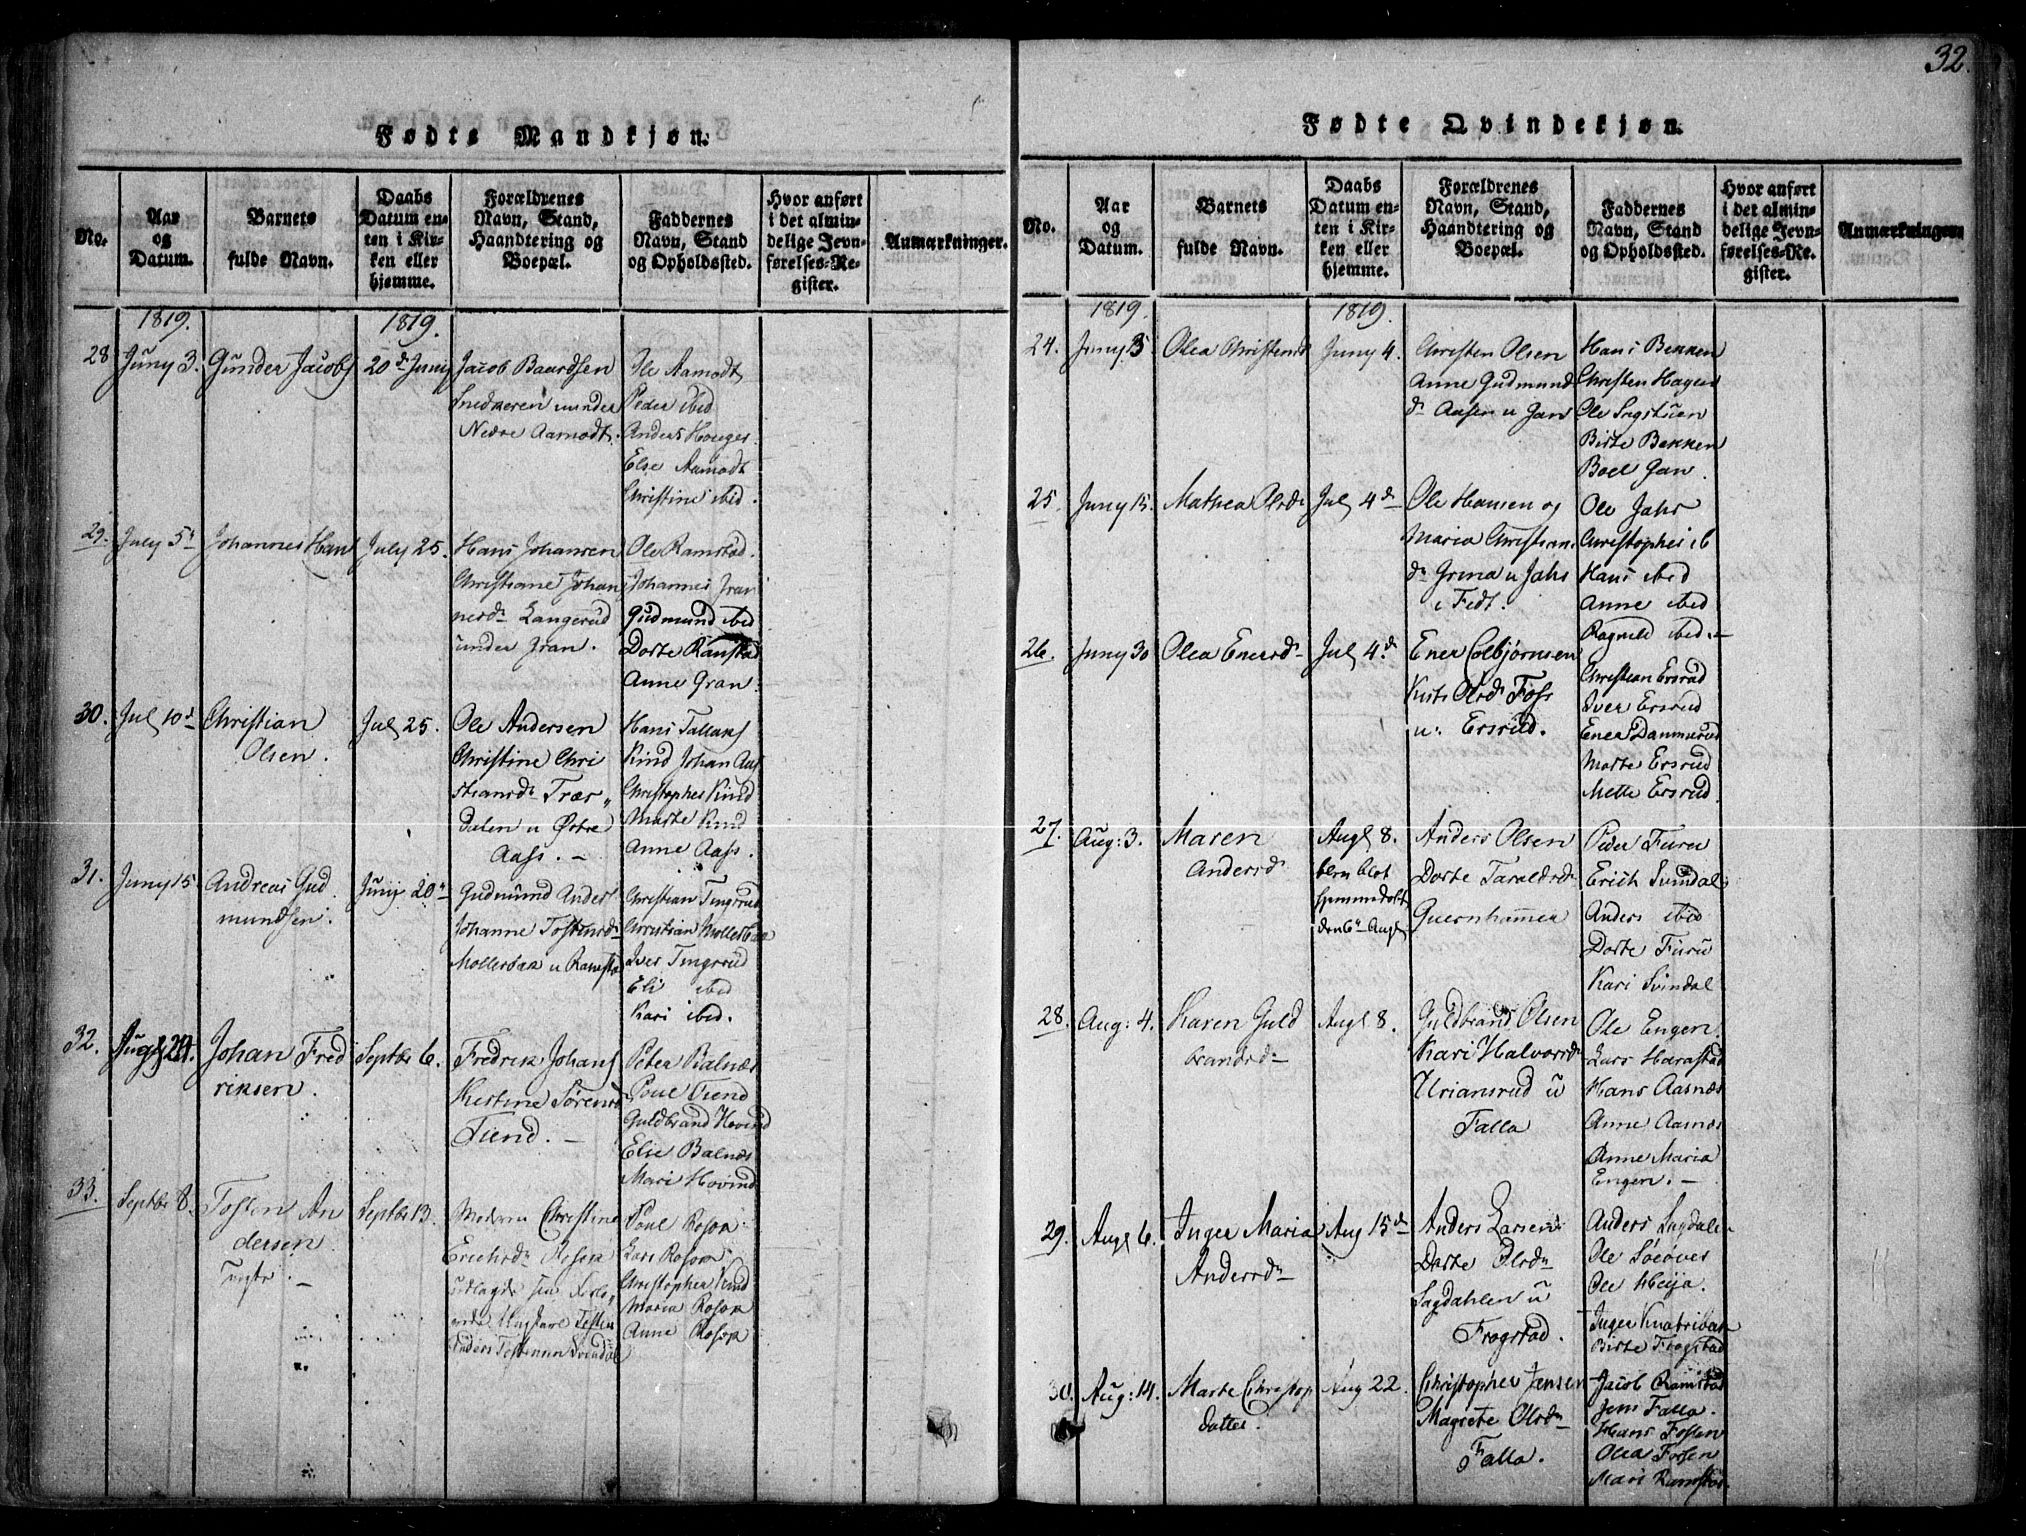 Fødte Mandkjøn.
No.
Aar
og
Datum.
Barnets
fulde Navn.
Daabs
Datum en-
ten i Kir-
ken eller
hjemme.
Forældrenes
Navn, Stand,
Haandtering og
Boepæl.
Faddernes
Navn, Stand
og Opholdssted.
Hvor anført
i det almin-
delige Jevn-
førelses-Re-
gister.
Anmærkninger.
1819.
1819.
28
Juny 3.
Gunder Jacobs
20de Juny
Jacob Baardsen
Snedkeren under
Nedre Aamodt.
Ole Aamodt
Peder ibid
Anders Houger
Else Aamodt
Christine ibid.
29.
July 5te
Johannes Hans
July 25.
Hans Johansen
Christiane Johan
nesdr Langerud
under Gran.
Ole Ramstad
Johannes Gran
Gudmund ibid
Dorte Ramstad
Anne Gran.
30.
Jul 10d
Christian
Olsen.
Jul 25.
Ole Andersen
Christine Chri
stiansdr Træs„
dalen u Østre
Aass. –
Hans Tallaks
Kind Johan Aas
Christopher Kind
Marte Kind
Anne Aass.
31.
Juny 15
Andreas Gud
mundsen.
Juny 20de
Gudmund Anders
Johanne Tostensdr
Mollerbak u Ramsta
Christian Tingsrud
Christian Mollerbak
Iver Tingsrud
Eli ibid
Kari ibid.
32.
Augs 24.
Johan Fred
riksen.
Septbr 6.
Fredrik Johans
Kirstine Sørensd
Tiend. –
Peter Balnæs
Poul Tiend
Guldbrand Hovind
Else Balnæs
Mari Hovind
33.
Septbr 8.
Tosten An
dersen
uægte. –
Septbr 13.
Moderen Christine
Erichsdr Rosok
udlagde sin
Anders Tostensen Svendal
Poul Rosok
Lars Rosok
Christopher Kind
Maria Rosok
Anne Rosok
32.
Fødte Qvindekjøn.
No.
Aar
og
Datum.
Barnets
fulde Navn.
Daabs
Datum en-
ten i Kir-
ken eller
hjemme.
Forældrenes
Navn, Stand,
Haandtering og
Boepæl.
Faddernes
Navn, Stand
og Opholdssted.
Hvor anført
i det almin-
delige Jevn-
førelses-Re-
gister.
Anmærkninger.
1819.
1819.
24.
Juny 3
Olea Christensd
Juny 4.
Christen Olsen
Anne Gudmund
dr Aasen u Gan
Hans Bekken
Christen Hagen
Ole Sagstuen
Birte Bekken
Boel Gan.
25.
Juny 15.
Mathea Olsdr
Jul 4de
Ole Hansen og
Maria Christians
dr Grina u Jahr
i Fedt.
Ole Jahr
Christopher ib
Hans ibid
Anne ibid
Ragnild ibid. –
26.
Juny 30
Olea Enersdr
Jul 4de
Ener Colbjørnsen
Kirsti Olsdr Foss
u: Ersrud.
Christian Ersrud
Iver Ersrud
Ener Dammerud
Marte Ersrud
Mette Ersrud.
27.
Aug: 3.
Maren
Andersdr
Augs 8.
blev blot
hjemmedøbt
den 6te Augs
Anders Olsen
Dorte Taraldsdr
Quernhammer
Peder Furu
Erich Svindal
Anders ibid
Dorte Furu
Kari Svindal
28.
Aug: 4.
Karen Guld
brandsdr
Augs 8.
Guldbrand Olsen
Kari Halvorsdr
Uriansrud u
Falla
Ole Engen
Lars Harastad
Hans Aasnæs
Anne Aasnæs
Anne Maria
Engen. –
29.
Augs 6.
Inger Maria
Andersdr
Aug 15de
Anders Larsen
Dorte Olsdr
Sagdahlen u
Frogstad.
Anders Sagdalen
Ole Heija.
Inger Knatribak
Birte Frogstad
30.
Aug: 14.
Marte Christop
datter.
Aug 22.
Christopher Jensen
Magrete Olsdr
Falla.
Jacob Ramstad
Jens Falla.
Hans Fossen
Olea Fossen
Mari Ramstad.